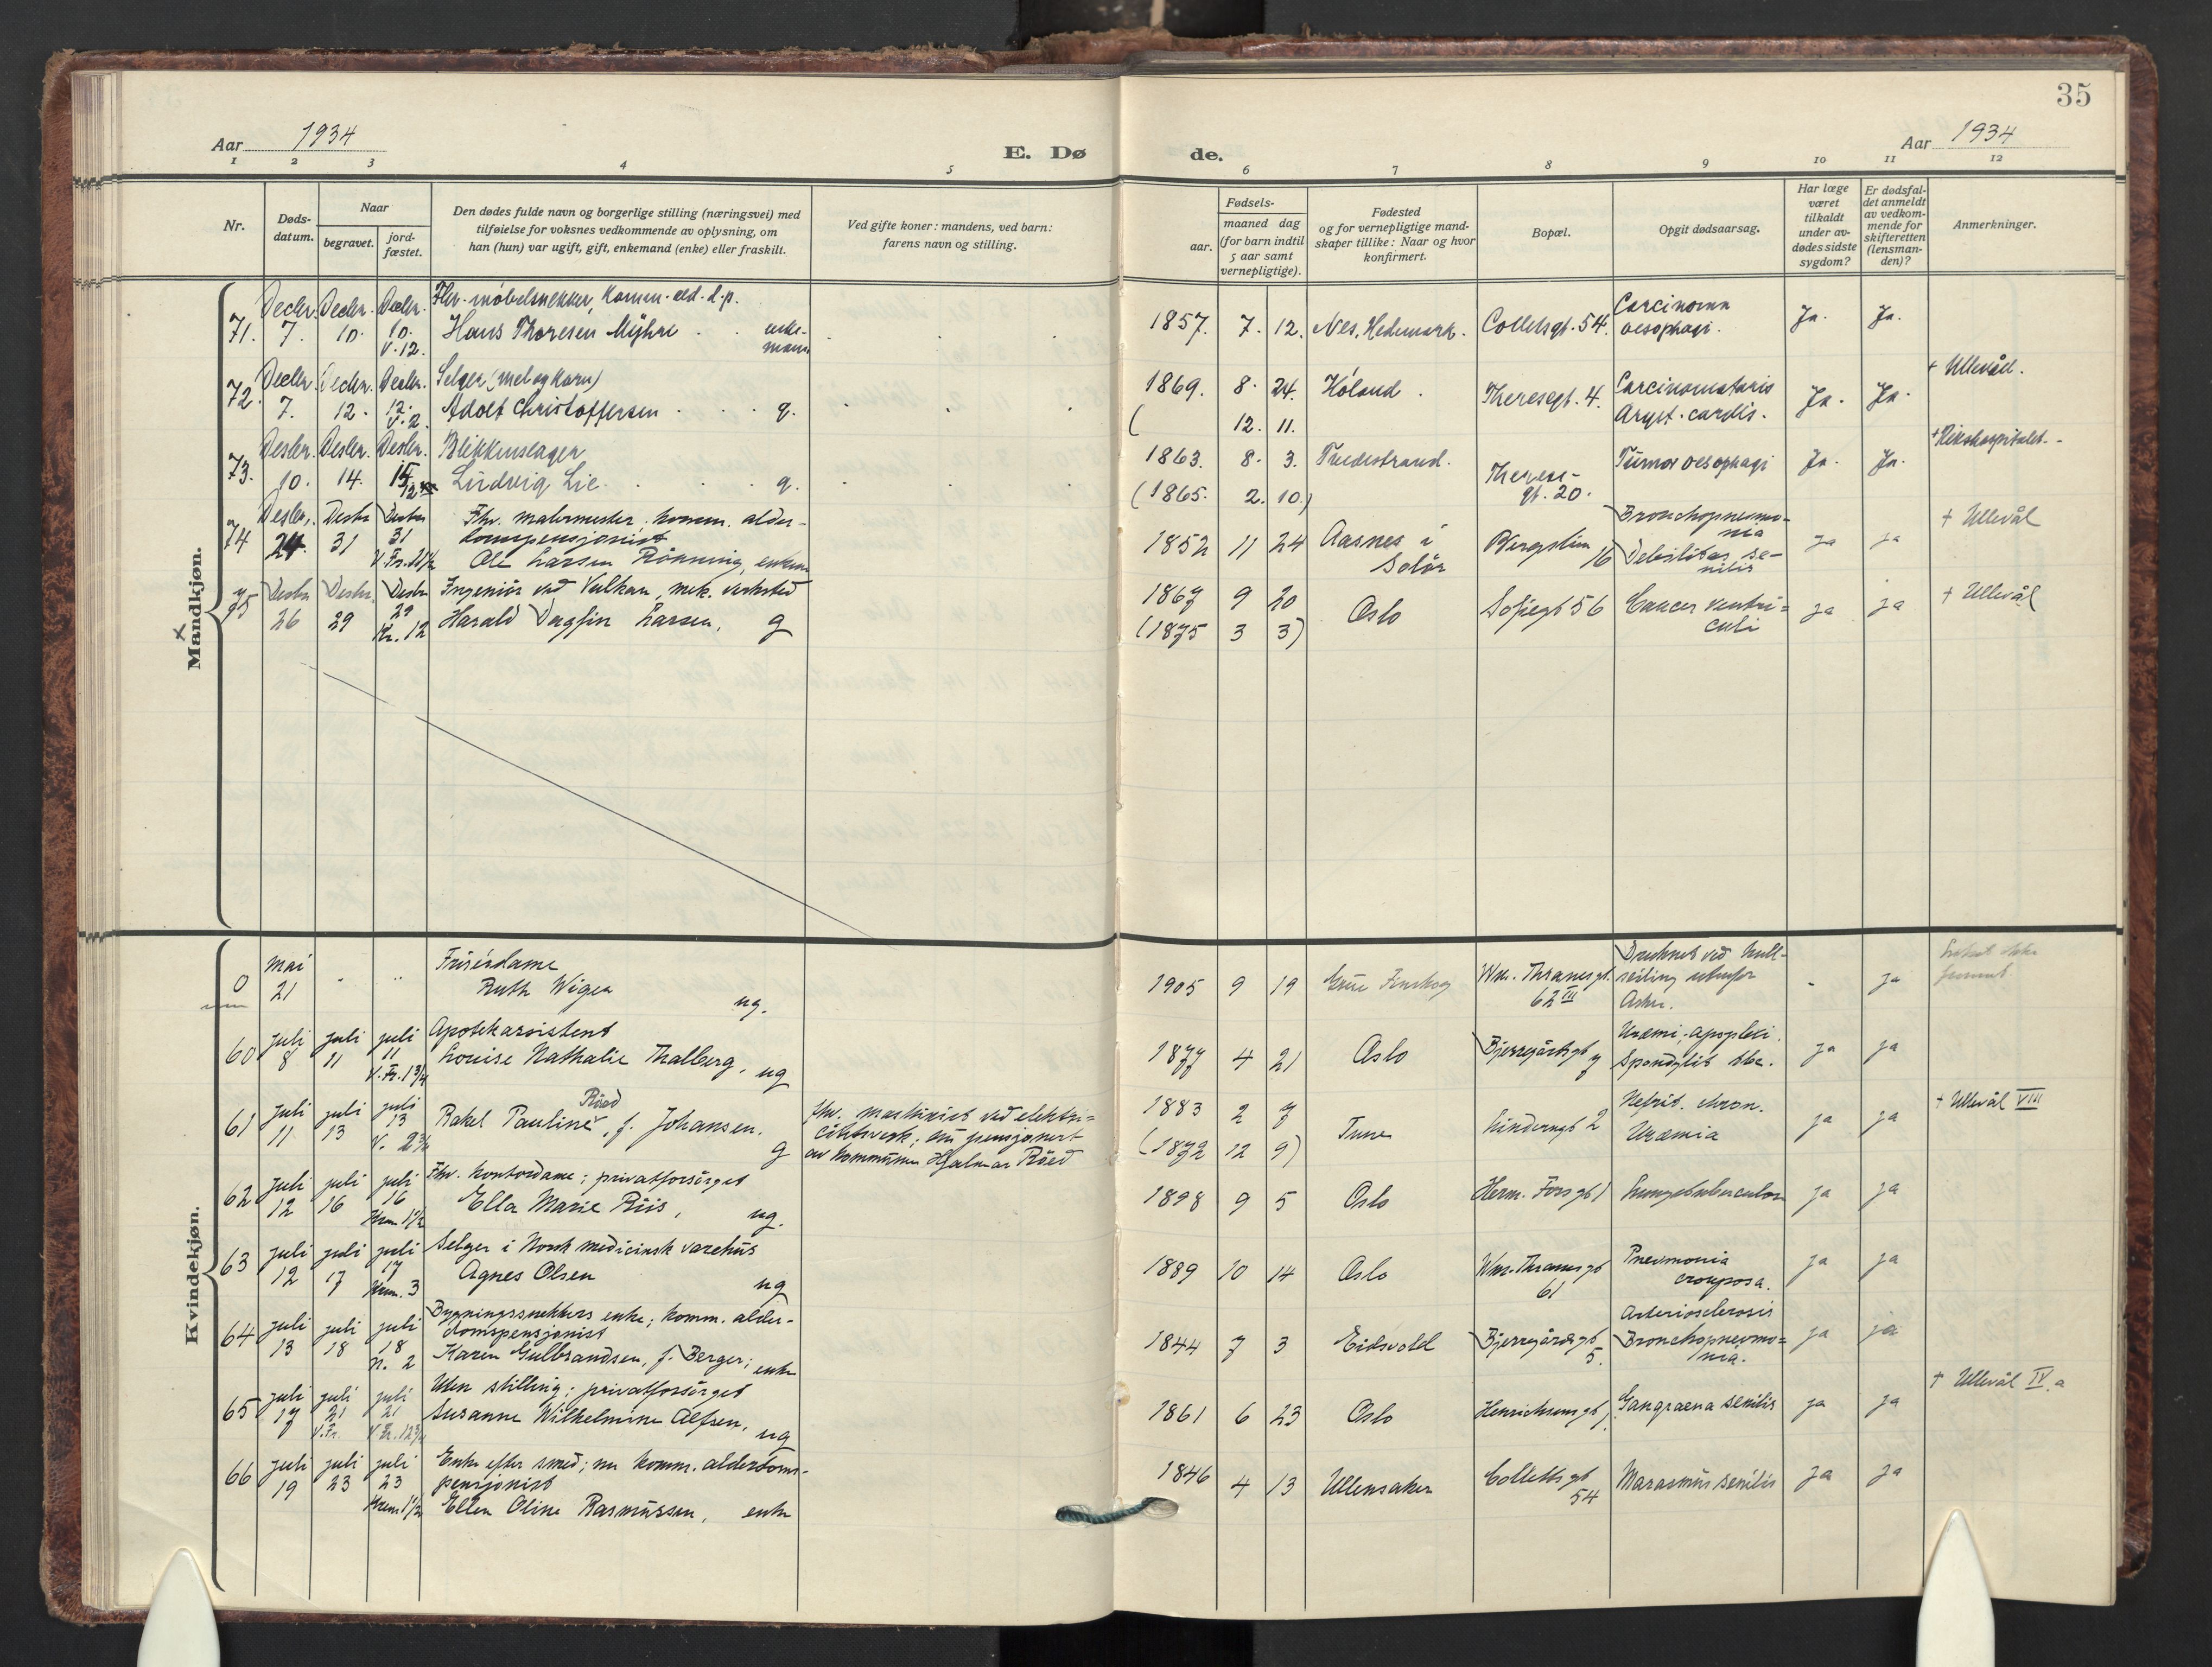 35
Aar 1934
E. Dø
de.
Aar 1934
1 2 3 4 5 6 7 8 9 10 11 12
Nr.
Døds-
datum.
Naar
begravet.
jord-
fæstet.
Den dødes fulde navn og borgerlige stilling (næringsvei) med
tilføielse for voksnes vedkommende av oplysning, om
han (hun) var ugift, gift, enkemand (enke) eller fraskilt.
Ved gifte koner: mandens, ved barn:
farens navn og stilling.
Fødsels-
aar.
maaned dag
(for barn indtil
5 aar samt
vernepligtige).
Fødested
og for vernepligtige mand-
skaper tillike: Naar og hvor
konfirmert.
Bopæl.
Opgit dødsaarsag.
Har læge
været
tilkaldt
under av-
dødes sidste
sygdom?
Er dødsfal-
det anmeldt
av vedkom-
mende for
skifteretten
(lensman-
den)?
Anmerkninger.
Mandkjøn.
71. Decbr. 7. Decbr. 10. Decbr. 10. V. 12.
Fhv. møbelsnekker, komm. ald. d.p.
Hans Thoresen Myhre enke-
mann
1857. 7. 12. Nes, Hedemark. Colletsgt. 54. Carcinoma
oesophagi. Ja. Ja.
72. Decbr. 7. Decbr. 12. Decbr. 12. V. 2.
Selger (mel og korn)
Adolf Christoffersen g.
1869. 8. 24. Høland. Theresegt. 4. Carcinomatosis
cardis. Ja. Ja. + Ullevål.
( 12. 11.
73. Desbr. 10. Desbr. 14. Desbr. 15
Blikkenslager
Ludvig Lie g.
1863. 8. 3. Tvedestrand. Therese-
gt. 20. Tumor oesophagi Ja. Ja. + Rikshospitalet.
(1865. 2. 10.)
74 Desbr. 24. Desbr 31 Desbr 31 V. Fr. 11½
Fhv. malermester, komm. alder-
domspensjonist
Ole Larsen Rönning, enkem
1852 11 24 Aasnes i
Solör Bergslien
16 Bronchopneumo-
nia
Debilitas se-
nilis ja ja + Ullevål
75 Desbr 26 Desbr. 29 Desbr 29 Kr. 12
Ingeniör ved Vulkan, mek. verksted
Harald Dagfin Larsen, g
1867 9 20 Oslo Sofiegt 56 Cancer ventri-
culi ja ja + Ullevål
(1875 3 3)
Kvindekjøn.
0 mai 21
Frisérdame
Ruth Wiger ug.
1905 9 19 Grue Finskog Wm. Thranesgt.
62 III Druknet ved kull-
seiling utenfor
ja
60 juli 8 juli 11 juli 11 V. Fr. 1¾
Apotekassistent
Louise Nathalie Thalberg, ug
1877 4 21 Oslo Bjerregårdsgt 7 Uræmi, apoplexi.
Spondylit tbc. ja ja
61 juli 11 juli 13 juli 13 V. 2¾
Röed
Rakel Pauline, f. Johansen, g
fhv. maskinist ved elektri-
citetsverk; nu pensjonert
av kommunen Hjalmar Röed
1883 2 7 Tune Linderngt 2 Nefrit. chron.
Uræmia ja ja + Ullevål VIII
(1872 12 9)
62 juli 12 juli 16 juli 16 Krem 1½
Fhv. kontordame; privatforsörget
Ella Marie Riis, ug.
1898 9 5 Oslo Herm. Fossgt 1 Lungetuberculose ja ja
63 juli 12 juli 17 juli 17 Krem. 3
Selger i Norsk medicinsk varehus
Agnes Olsen ug
1889 10 14 Oslo Wm. Thranesgt
61 Pneumonia
crouposa. ja ja
64 juli 13 juli 18 juli 18 N. 2
Bygningssnekkers enke; komm. alder-
domspensjonist
Karen Gulbrandsen, f. Berger; enke
1844 7 3 Eidsvold Bjerregårdsgt
5. Arteriosclerosis
Bronchopneumo-
nia. ja ja
65 juli 17 juli 21 V. Fr. juli 21 V. Fr. 12¾
Uten stilling; privatforsörget
Susanne Wilhelmine Alfsen, ug
1861 6 23 Oslo Henrichsensgt 1 Gangraena senilis ja ja + Ullevål IV a
66 juli 19 juli 23 juli 23 Krem 1½
Enke efter smed; nu komm. alderdoms-
pensjonist
Ellen Oline Rasmussen, enke
1846 4 13 Ullensaker Collettsgt
54 Marasmus senilis ja ja